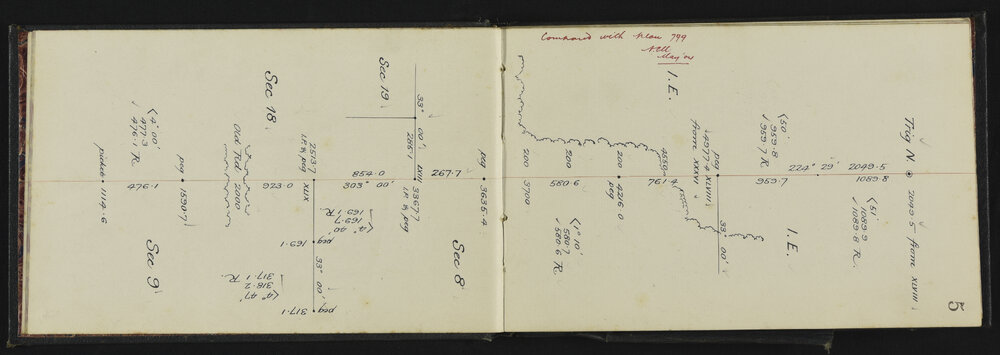 5
Trig N ⊙ 2049.5 from XLVIII
2049.5
1089.8
< 51'
1089.9
✓ 1089.8 R.
224° 29'
I. E.
959.7
< 50'
959.8
✓ 959.7 R.
33° 00'
peg XLVIII
✓ 4977.4
from XXXVI
I. E.
761.4
4659
4216.0
peg
200
580.6
< 1° 10'
580.7
580.6 R.
200
3700
200
Compared with plan 799
May '01
peg 3635.4
267.7
Sec 8
XVII 3367.7
I.P. & peg
33° 00'
2861
Sec 19
854.0
303° 00'
< 4° 40'
169.7
169.1 R.
peg 169.1
33° 00'
< 4° 47'
318.2
317.1 R.
peg 317.1
2513.7
I.P. & peg
XIX
923.0
Sec 18
Old Rd 2000
peg 1590.7
476.1
< 4° 00'
477.3
✓ 476.1 R.
picket 1114.6
Sec 9